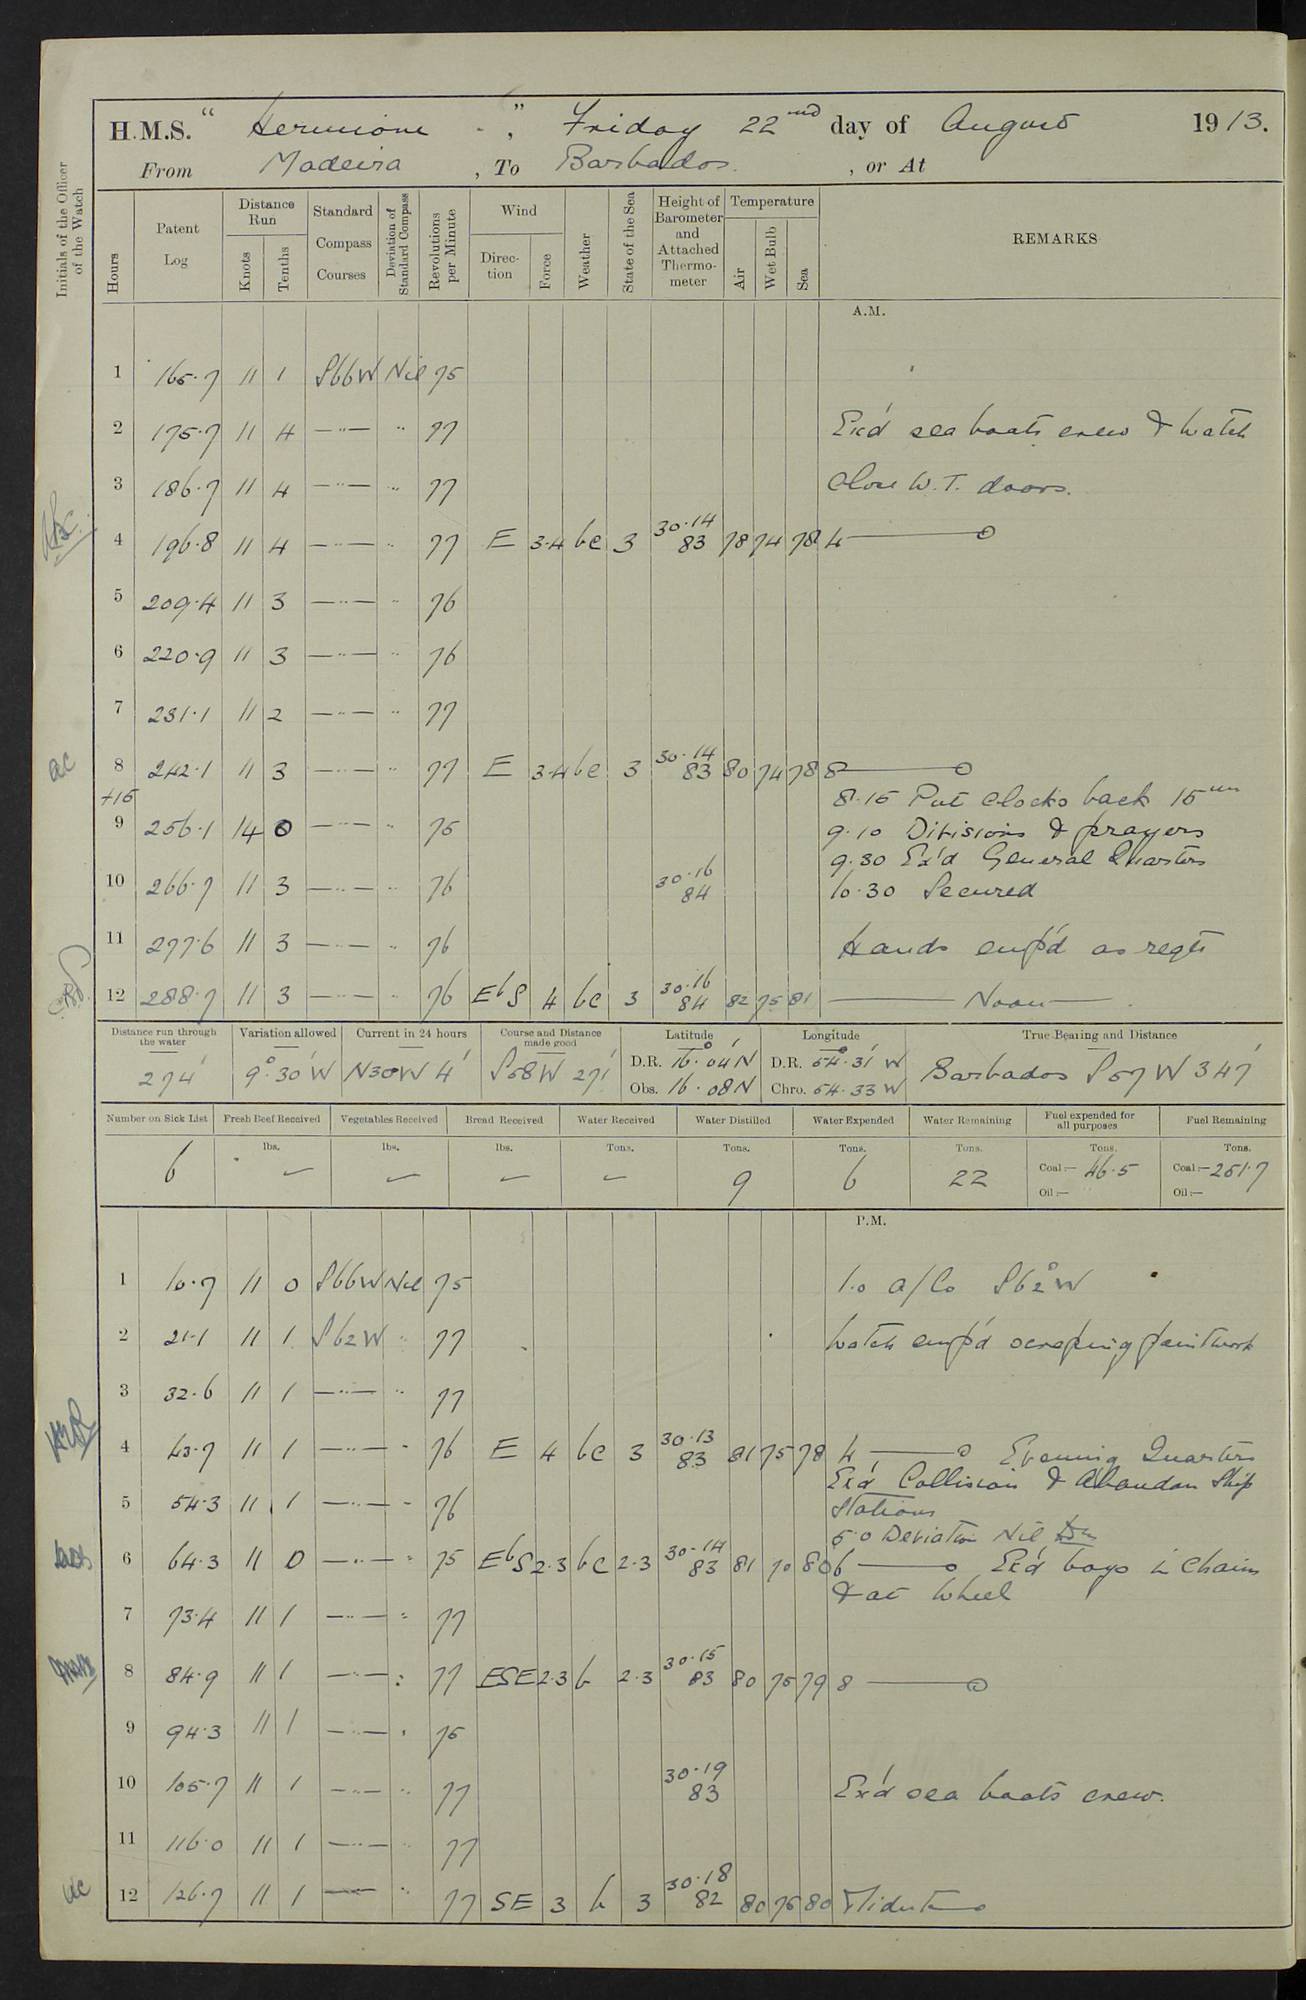 H.M.S. "Hermione", Friday 22nd day of August 1913.
From Madeira, To Barbados, or At
Initials of the Officer of the Watch
Hours
Patent Log
Distance Run
Knots
Tenths
Standard Compass Courses
Deviation of Standard Compass
Revolutions per Minute
Wind
Direction
Force
Weather
State of the Sea
Height of Barometer and Attached Thermometer
Temperature
Air
Wet Bulb
Sea
REMARKS
A.M.
1 165.7 11 1 S66W Nil 75
2 175.7 11 4 —"— " 77 Ex'd sea boats crew & watch
3 186.7 11 4 —"— " 77 close W.T. doors.
4 196.8 11 4 —"— " 77 E 3.4 bc 3 30.14 83 78 74 78 4
5 209.4 11 3 —"— " 76
6 220.9 11 3 —"— " 76
7 231.1 11 2 —"— " 77
ac 8 242.1 11 3 —"— " 77 E 3.4 bc 3 30.14 83 80 74 78 8
+15 8.15 Put clocks back 15mn
9 256.1 14 0 —"— " 75 9.10 Divisions & prayers
9.30 Ex'd General Quarters
10 266.7 11 3 —"— " 76 30.16 84 10.30 Secured
11 277.6 11 3 —"— " 76 Hands emp'd as reqte
12 288.7 11 3 —"— " 76 EbS 4 bc 3 30.16 84 82 75 81 Noon
Distance run through the water 274'
Variation allowed 9°.30'W
Current in 24 hours N30W 4'
Course and Distance made good S68W 271'
Latitude D.R. 16°.04'N Obs. 16.08N
Longitude D.R. 54°.31'W Chro. 54.33W
True Bearing and Distance Barbados S57W 347'
Number on Sick List 6
Fresh Beef Received lbs. —
Vegetables Received lbs. —
Bread Received lbs. —
Water Received Tons. —
Water Distilled Tons. 9
Water Expended Tons. 6
Water Remaining Tons. 22
Fuel expended for all purposes Tons. Coal:— 46.5 Oil:—
Fuel Remaining Tons. Coal:— 251.7 Oil:—
P.M.
1 10.7 11 0 S66W Nil 75 1.0 a/Co S62°W
2 21.1 11 1 S62W " 77 Watch emp'd scraping paintwork
3 32.6 11 1 —"— " 77
4 43.7 11 1 —"— " 76 E 4 bc 3 30.13 83 81 75 78 4 Evening Quarters
Ex'd Collision & Abandon Ship
5 54.3 11 1 —"— " 76 Stations
5.0 Deviation Nil
6 64.3 11 0 —"— " 75 EbS 2.3 bc 2.3 30.14 83 81 70 80 6 Ex'd boys in chains
& at wheel
7 73.4 11 1 —"— " 77
8 84.9 11 1 —"— " 77 ESE 2.3 b 2.3 30.15 83 80 75 79 8
9 94.3 11 1 —"— " 75
10 105.7 11 1 —"— " 77 30.19 83 Ex'd sea boats crew.
11 116.0 11 1 —"— " 77
ac 12 126.7 11 1 —"— " 77 SE 3 b 3 30.18 82 80 75 80 Midnt